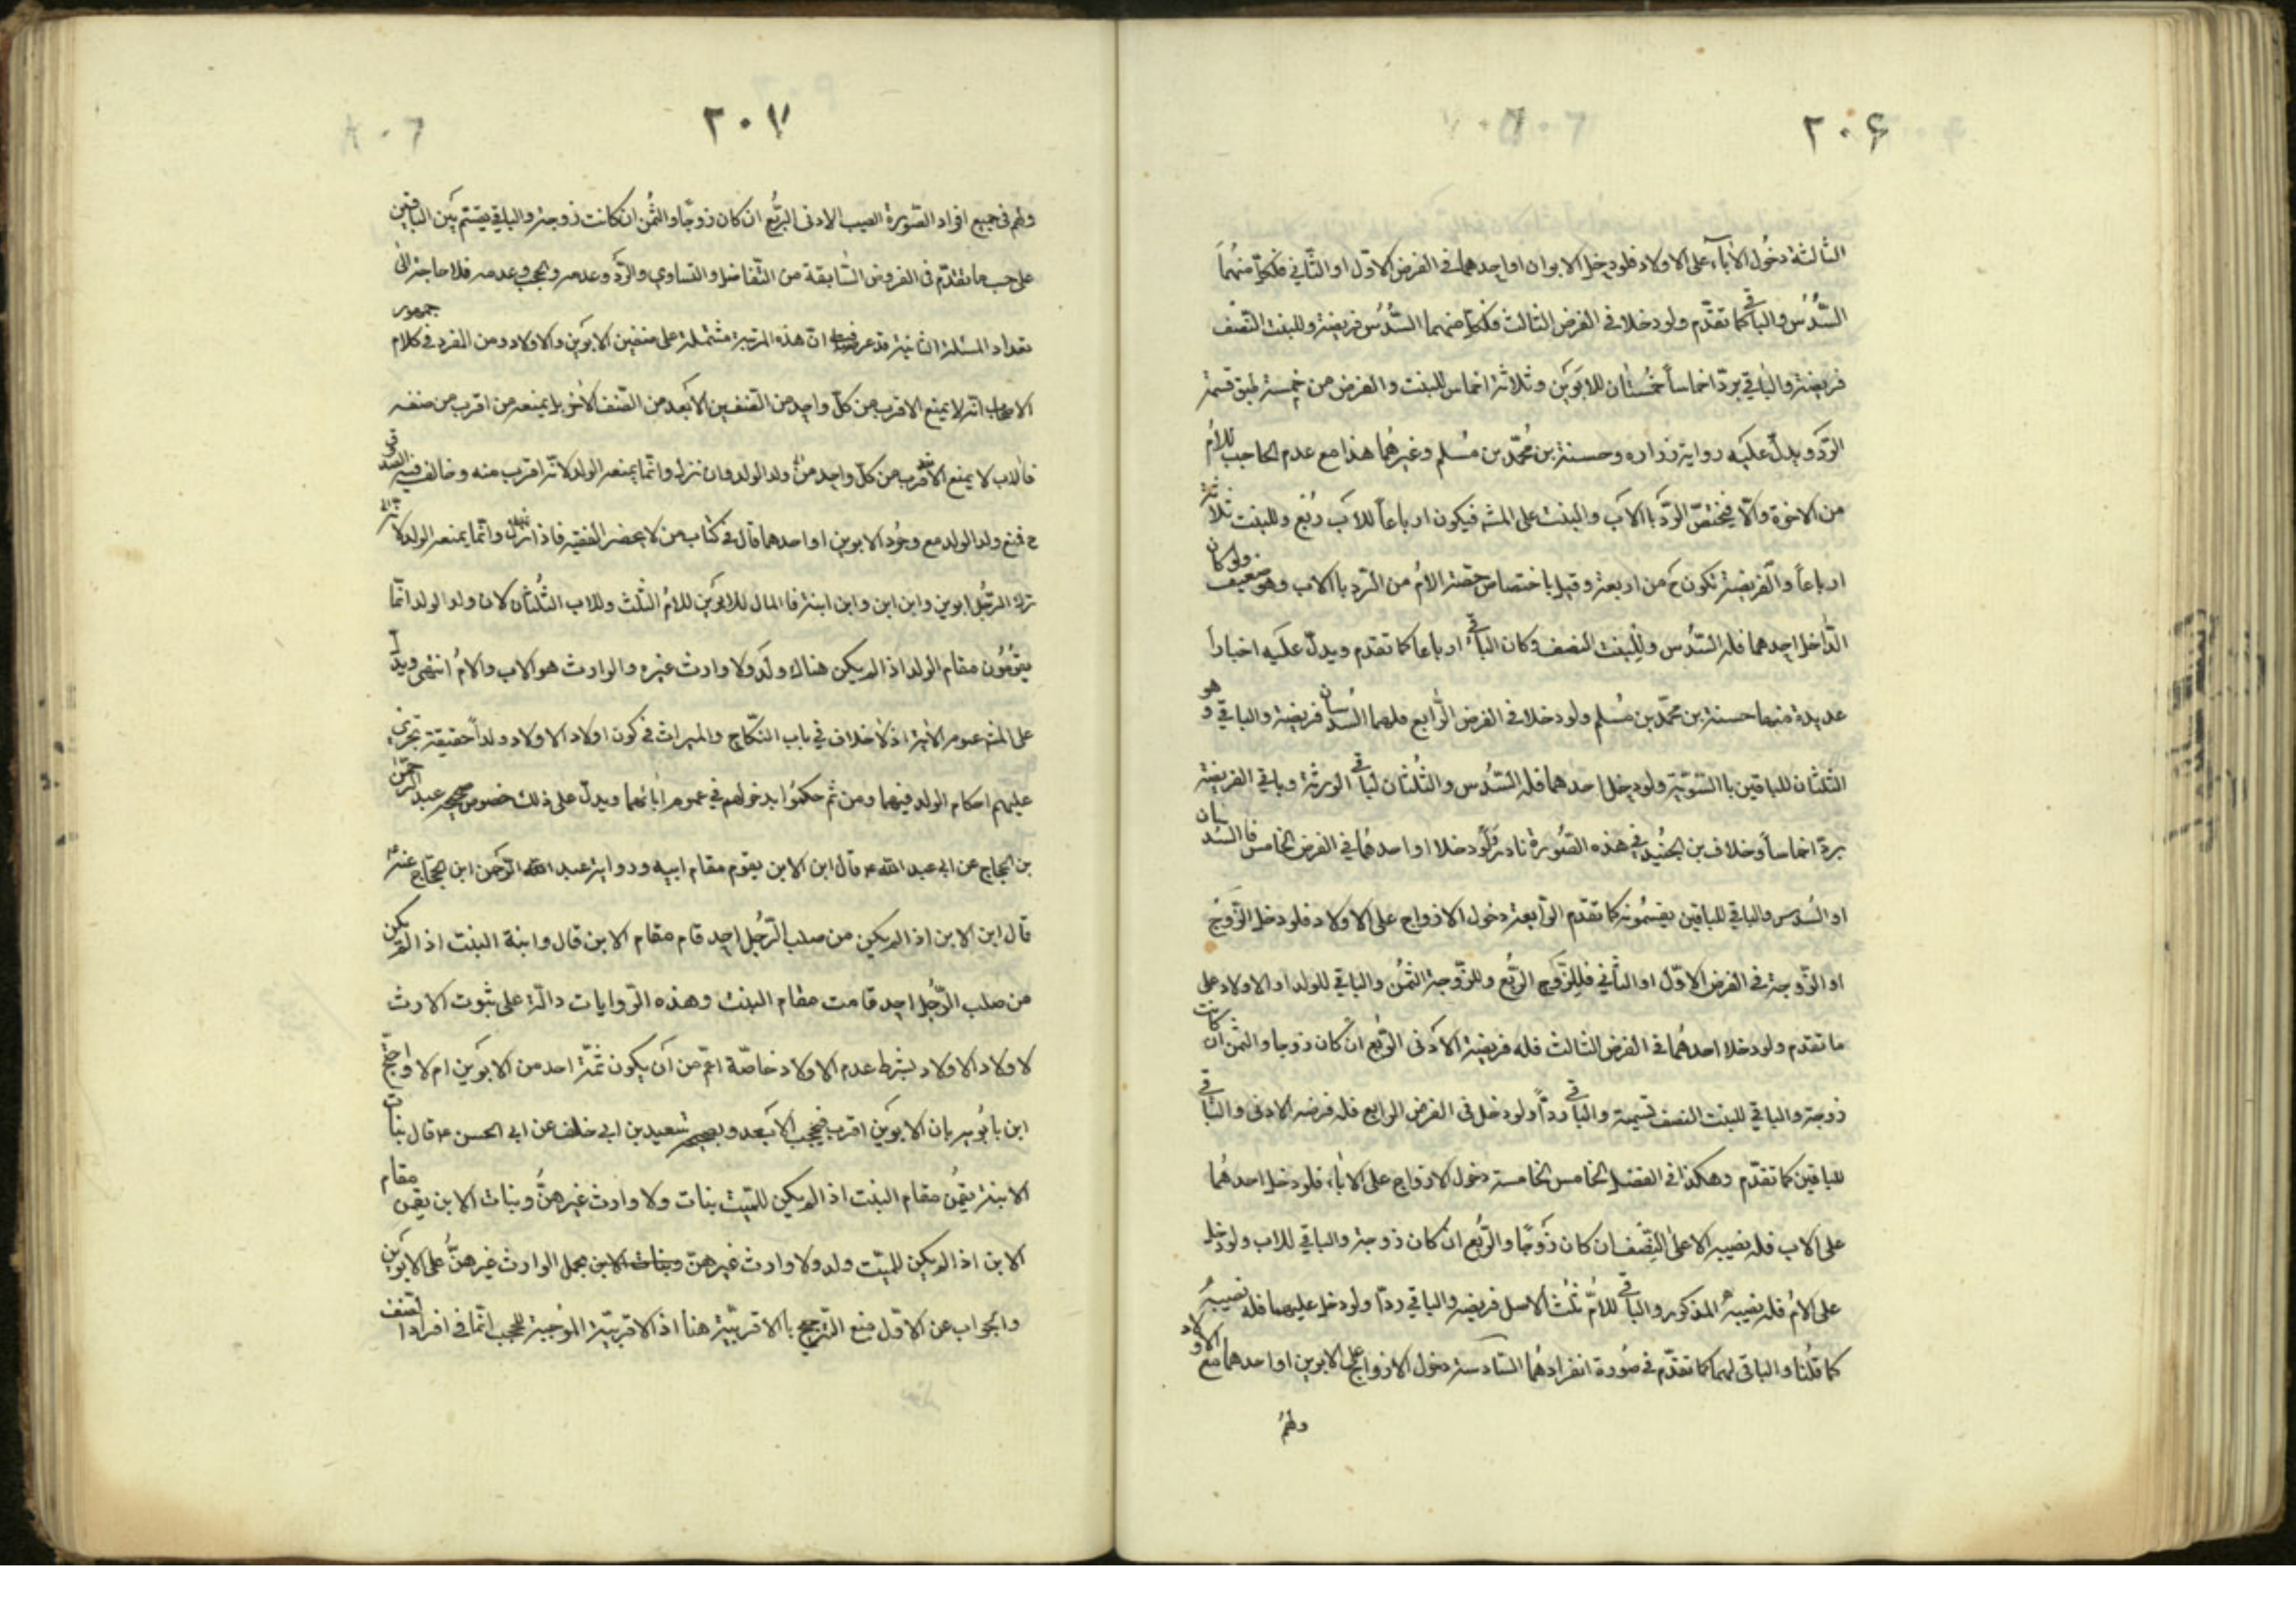 ٢٠۶
الثالثة دخُول الأبآء على الاولاد فلو دخل الابوان او احدهما فى الفرض الاوّل او الثّاني فلكلّ منهُما
السُّدُس والباقي كما تقدّم ولو دخلا فى الفرض الثالث فلكلّ منهما السُّدُس فريضة وللبنت النّصف
فريضة والباقي يردّ اخماساً خُمسان للابوَين وثلاثة اخماس للبنت والفرض من خمسة لحق قسمة
الرّد ويدلّ عليه رواية زراره وحسنة بن مُحمّد بن مُسلم وغيرهُما هذا مع عدم الحاجب للامّ
من الاخوة والّا فيختصّ الرّد باالاب والبنت على المشه فيكون ارباعاً للاب رُبع وللبنت ثلاثة
ارباعاً والفريضة تكون ح من اربعة وقيل باختصاص حصّة الامُ من الرّد باالاب وهو ضعيف ولو كان
الدّاخل احدهما فله السُّدس وللبنت النصف وكان الباقي ارباعا كما تقدم ويدلّ عليه اخبارا
عديدة منها حسنة بن محمّد بن مُسلم ولو دخلا فى الفرض الرّابع فلهما السُّدسان فريضة والباقي وهو
الثلثان للباقين باالسّويّة ولو دخل احدهما فله السُّدس والثُلثان لباقي الورثة وباقي الفريضة
يردّ اخماساً وخلاف بن الجُنيد في هذه الصُّورة نادر فلو دخلا او احدهُما في الفرض الخامس فاالسُّدسان
او السُّدس والباقي للباقين يقسمُونه كما تقدّم الرّابعة دخول الازواج على الاولاد فلو دخل الزّوجُ
او الزّوجة فى الفرض الاوّل او الثّاني فللزّوج الرّبع وللزّوجة الثُمن والباقي للولد او الاولاد على
ما تقدم ولو دخلا احدهُما فى الفرض الثالث فله فريضة الادنى الرّبع ان كان زوجا والثمن ان كانت
زوجة والباقي للبنت النصف تسمية والباقي ردّاً ولو دخل فى الفرض الرابع فله فرضه الادنى والباقي
للباقين كما تقدّم وهكذا فى الفصل الخامس الخامسة دخول الازواج على الاباء فلو دخل احدهُما
على الاب فله نصيبه الاعلى النِصف ان كان زَوجًا والرّبع ان كان زوجة والباقي للاب ولو دخل
على الامُ فله نصيبه المذكور والباقي للامّ ثلث الاصل فريضه والباقي ردّا ولو دخل عليهما فله نصيبهُ
كما قلُنا والباقى لهما كما تقدّم فى صُورة انفرادهُما السّادسة دخول الازواج على الابوين او احدهما مع الاولاد
ولهمُ
٢٠٧
ولهم فى جميع افراد الصّورة النصيب الادنى الرّبُع ان كان زوجًا والثُمن ان كانت زوجة والباقي يقسّم بَين الباقين
على حسب ما تقدّم فى الفروض السّابقة من التّفاضل والتساوي والرّد وعدمه والحجب وعدمه فلا حاجة الى
تعداد المسئلة الثانية قد عرفت انّ هذه المرتبة مشتملة على صنفين الابوَين والاولاد ومن المقرر فى كلام جمهور
الاصحاب انّه لا يمنع الاقرب من كلّ واحد من الصّنفين الابَعد من الصّنف الاخر بل يمنعه من اقرب من صنفه
فاالاب لا يمنع الاقرب من كلّ واحد من ولد الولد وان نزل وانّما يمنعه الولد لانّه اقرب منه وخالف فيه الصّدوق
ح فمنع ولد الولد مع وجُود الابوين او احدهما قال في كتاب من لا يحضر الفقيه فاذا ترك
ترك الرّجُل ابوين وابن ابن وابن ابنة فا المال للابوَين للامُ الثلث وللاب الثلُثان لان ولد الولد انّما
يقومُون مقام الولد اذا لم يكن هناك ولَد ولا وارث غيره والوارث هو الاب والامُ انتهى ويدلّ
على المشه عموم الاية اذ لا خلاف في باب النّكاح والميراث فى كون اولاد الاولاد ولداً حقيقة تجرى
عليهم احكام الولد فيهما ومن ثم حكمُوا بدخولهم في عموم ابائهما ويدلّ على ذلك خصوص صحيحه عبد الرّحمن
بن الحجاج عن ابى عبد الله ع قال ابن الابن يقوم مقام ابيه ورواية عبد الله الرّحمن ابن الحجّاج عنه ع
قال ابن الابن اذا لم يكن من صلب الرّجُل احد قام مقام الابن قال وابنة البنت اذا لم يكن
من صلب الرّجُل احد قامت مقام البنت وهذه الرّوايات دالّة على ثبوت الارث
لاولاد الاولاد بشرط عدم الاولاد خاصّة اعمّ من اَن يكون ثمّة احد من الابوَين ام لا واحتج
ابن بابُويه بان الابوَين اقرب فيحجب الابَعد وبصحيحه سَعيد بن ابى خلف عن ابى الحسن ع قال بنات
الابنة يقمُن مقام البنت اذا لم يكن للميّت بنات ولا وارث غيرهنُّ وبنات الابن يقمن مقام
الابن اذا لم يكن للميّت ولد ولا وارث غيرهنّ وبنات الابن يحمل الوارث غيرهنُّ على الابوَين
والجُواب عن الاوّل منع التّرجيح باالاقربيّة هنا اذ الاقربيّة الموُجبة للحجب انّما فى افراد الصّنف